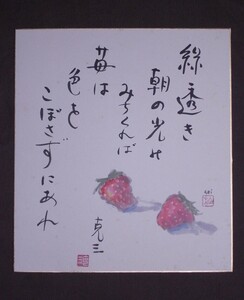 綠透き
朝の光の
みちくれば
苺は
色を
こぼさずにあれ
克三